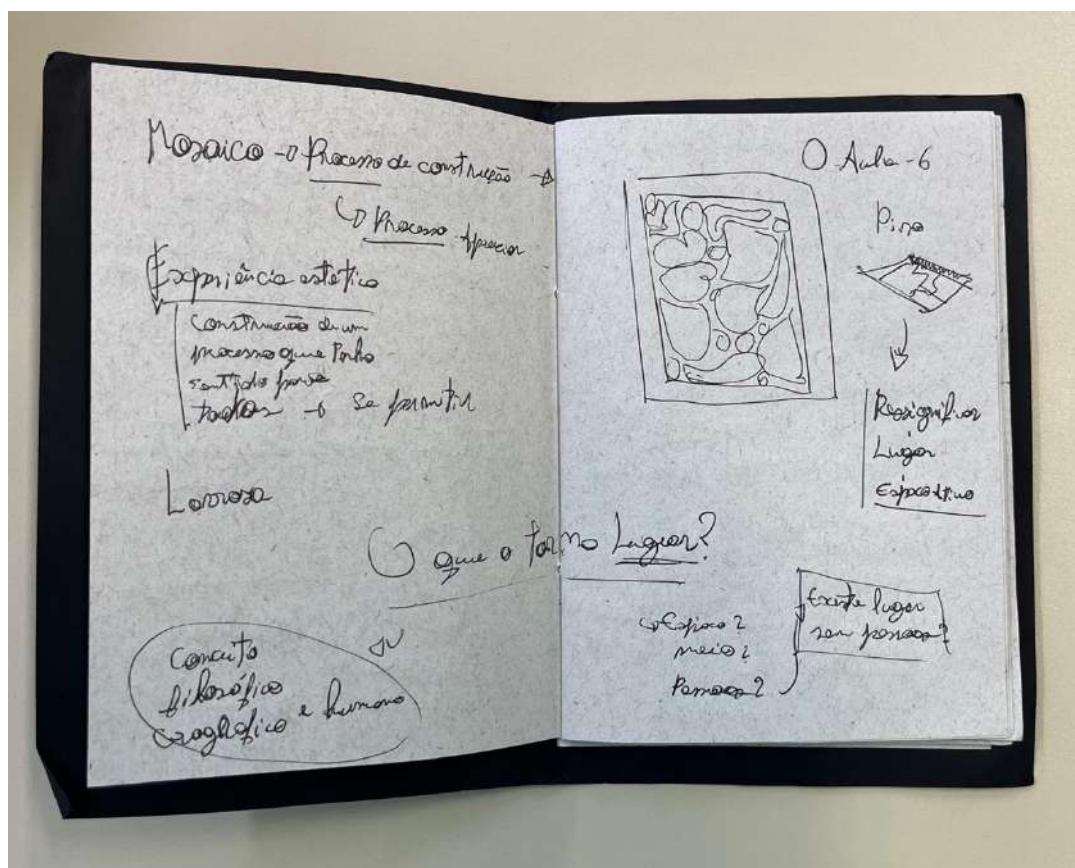 Mosaico → Processo de construção →
↳ Processo Apreciar
Experiência estética
Construção de um
processo que tenha
sentido para
todos → se permitir
Larrosa
O que o torna Lugar?
Conceito
filosófico
geográfico e humano
O Aula-6
Piso
Ressignificar
Lugar
↳ Espaço?
meio?
Pessoas?
Existe lugar
sem pessoas?